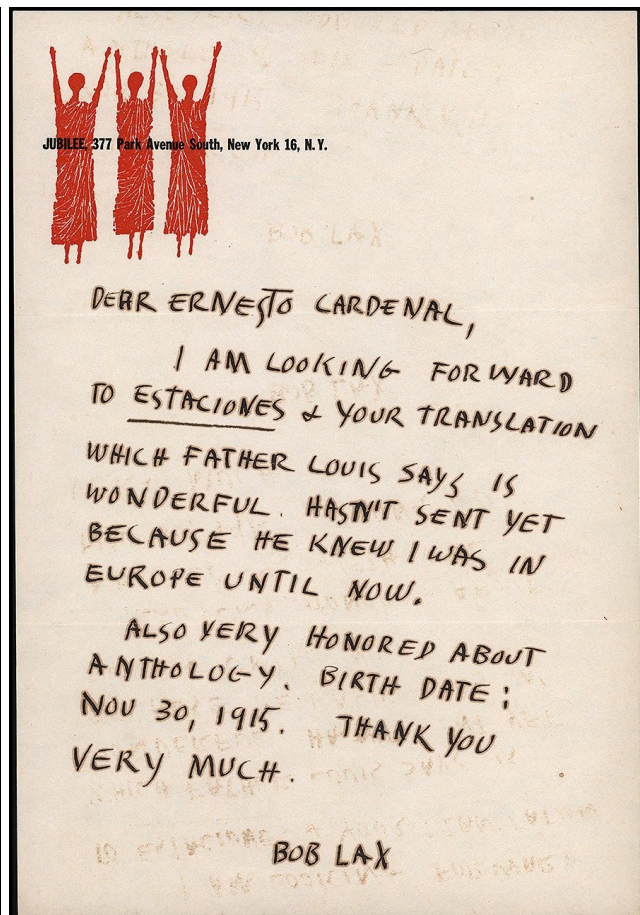 JUBILEE, 377 Park Avenue South, New York 16, N.Y.
DEAR ERNESTO CARDENAL,
I AM LOOKING FORWARD
TO ESTACIONES & YOUR TRANSLATION
WHICH FATHER LOUIS SAYS IS
WONDERFUL. HASN'T SENT YET
BECAUSE HE KNEW I WAS IN
EUROPE UNTIL NOW.
ALSO VERY HONORED ABOUT
ANTHOLOGY. BIRTH DATE:
NOV 30, 1915. THANK YOU
VERY MUCH.
BOB LAX